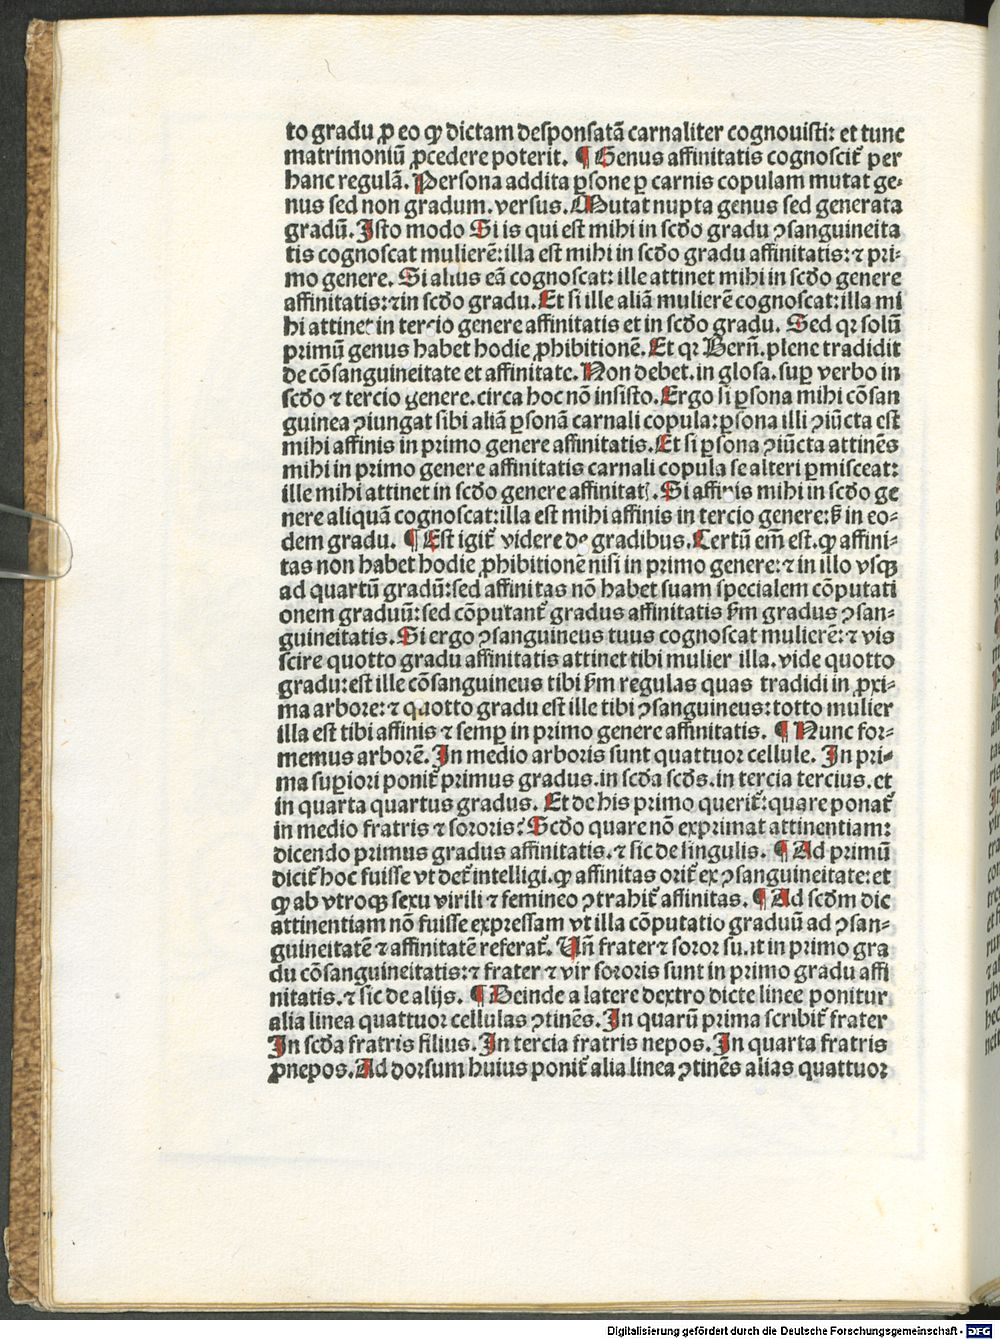 to gradu ꝓ eo ꝙ dictam desponsatā carnaliter cognouisti: et tunc
matrimoniū ꝓcedere poterit. ¶ Genus affinitatis cognoscit᷑ per
hanc regulā. Persona addita ꝑsone ꝑ carnis copulam mutat ge⸗
nus sed non gradum. versus. Mutat nupta genus sed generata
gradū. Isto modo Si is qui est mihi in scḋo gradu ꝯsanguineita
tis cognoscat mulierē: illa est mihi in scḋo gradu affinitatis: ⁊ pri⸗
mo genere. Si alius eā cognoscat: ille attinet mihi in scḋo genere
affinitatis: ⁊ in scḋo gradu. Et si ille aliā mulierē cognoscat: illa mi
hi attinet in tercio genere affinitatis et in scḋo gradu. Sed qꝛ solū
primū genus habet hodie ꝓhibitionē. Et qꝛ Bern̄. plene tradidit
de cōsanguineitate et affinitate. Non debet. in glosa. suꝑ verbo in
scḋo ⁊ tercio genere. circa hoc nō insisto. Ergo si ꝑsona mihi cōsan
guinea ꝯiungat sibi aliā ꝑsonā carnali copula: ꝑsona illi ꝯiūcta est
mihi affinis in primo genere affinitatis. Et si ꝑsona ꝯiūcta attinēs
mihi in primo genere affinitatis carnali copula se alteri ꝑmisceat:
ille mihi attinet in scḋo genere affinitatꝭ. Si affinis mihi in scḋo ge
nere aliquā cognoscat: illa est mihi affinis in tercio genere: ꝩ in eo⸗
dem gradu. ¶ Est igit᷑ videre de gradibus. Certū em̄ est. ꝙ affini⸗
tas non habet hodie ꝓhibitionē nisi in primo genere: ⁊ in illo vsqꝫ
ad quartū gradū: sed affinitas nō habet suam specialem cōputati
onem graduū: sed cōputant᷑ gradus affinitatis ẜm gradus ꝯsan⸗
guineitatis. Si ergo ꝯsanguineus tuus cognoscat mulierē: ⁊ vis
scire quotto gradu affinitatis attinet tibi mulier illa. vide quotto
gradu: est ille cōsanguineus tibi ẜm regulas quas tradidi in ꝓxi⸗
ma arbore: ⁊ quotto gradu est ille tibi ꝯsanguineus: totto mulier
illa est tibi affinis ⁊ semꝑ in primo genere affinitatis. ¶ Nunc for⸗
memus arborē. In medio arboris sunt quattuor cellule. In pri⸗
ma suꝑiori ponit᷑ primus gradus. in scḋa scḋs. in tercia tercius. et
in quarta quartus gradus. Et de his primo querit᷑: quare ponat᷑
in medio fratris ⁊ sororis? Scḋo quare nō exprimat attinentiam:
dicendo primus gradus affinitatis. ⁊ sic de singulis. ¶ Ad primū
dicit᷑ hoc fuisse vt det᷑ intelligi. ꝙ affinitas orit᷑ ex ꝯsanguineitate: et
ꝙ ab vtroqꝫ sexu virili ⁊ femineo ꝯtrahit᷑ affinitas. ¶ Ad scḋm dic
attinentiam nō fuisse expressam vt illa cōputatio graduū ad ꝯsan⸗
guineitatē ⁊ affinitatē referat᷑. Vn̄ frater ⁊ soror sunt in primo gra
du cōsanguineitatis: ⁊ frater ⁊ vir sororis sunt in primo gradu affi
nitatis. ⁊ sic de alijs. ¶ Deinde a latere dextro dicte linee ponitur
alia linea quattuor cellulas ꝯtinēs. In quarū prima scribit᷑ frater
In scḋa fratris filius. In tercia fratris nepos. In quarta fratris
ꝓnepos. Ad dorsum huius ponit᷑ alia linea ꝯtinēs alias quattuor
Digitalisierung gefördert durch die Deutsche Forschungsgemeinschaft - DFG